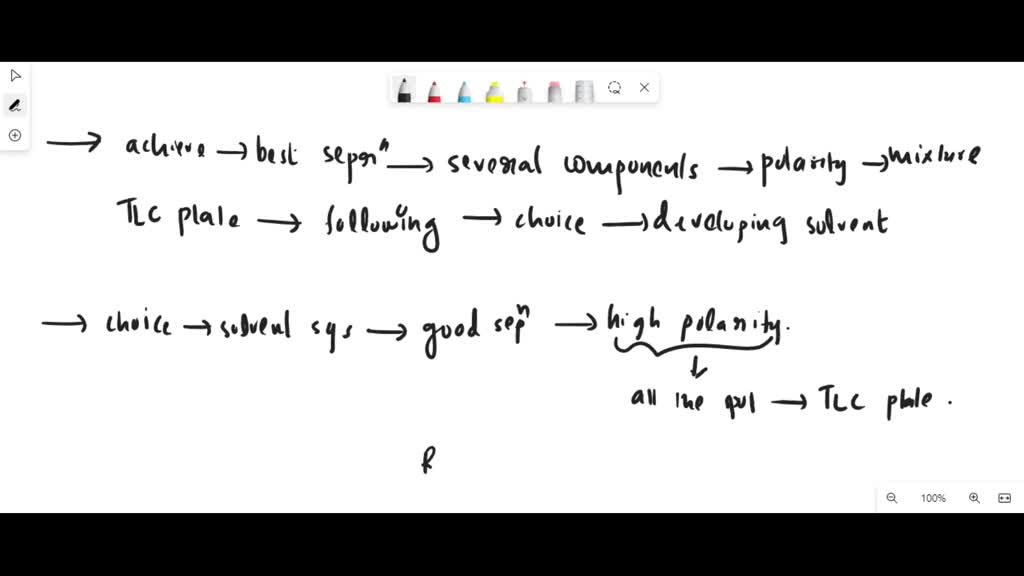 → achieve → best sepnⁿ → several components → polarity → mixture
TLC plate → following → choice → developing solvent
→ choice → solvent sys → good sepⁿ → high polarity.
↓
all the → TLC plate.
R
100%